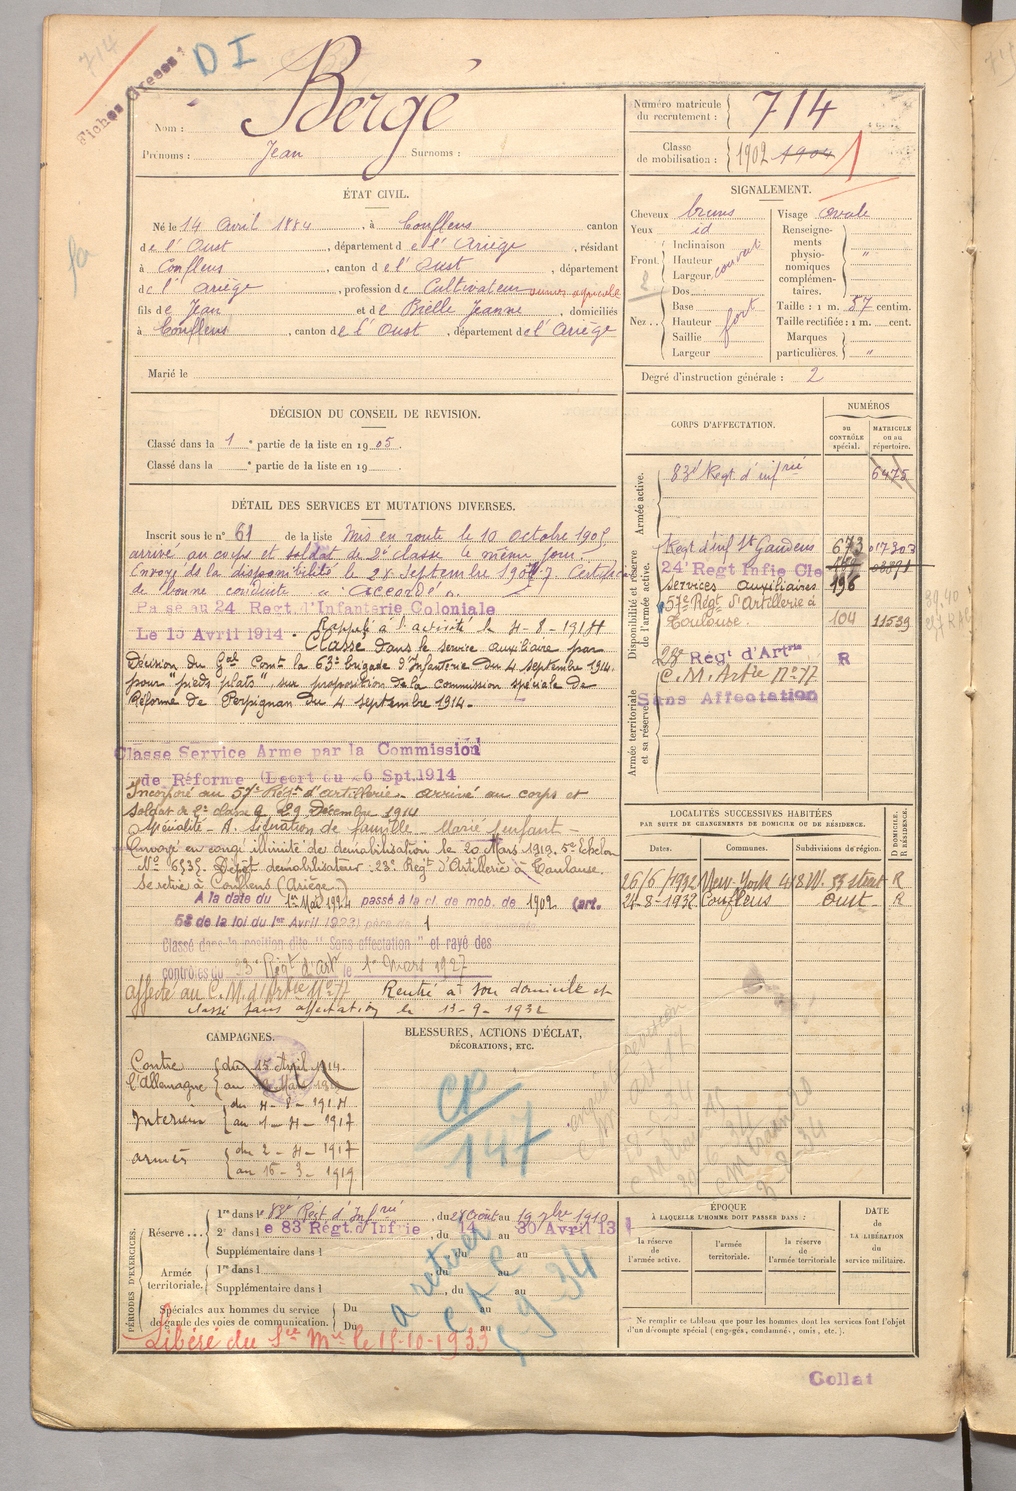 714
Fiches Gresse
D I
Nom : Bergé
Prénoms : Jean Surnoms :
Numéro matricule du recrutement : 714
Classe de mobilisation : 1902 1904
ÉTAT CIVIL.
Né le 14 Avril 1884, à Couflens canton
de l'Oust, département de l'Ariège, résidant
à Couflens, canton de l'Oust, département
de l'Ariège, profession de Cultivateur agricole
fils de Jean et de Bielle Jeanne, domiciliés
à Couflens, canton de l'Oust, département de l'Ariège
Marié le
SIGNALEMENT.
Cheveux bruns
Yeux id
Front. Inclinaison
Hauteur
Largeur
Nez.. Dos
Base
Hauteur
Saillie
Largeur
fort
Visage ovale
Renseignements physionomiques complémentaires. "
Taille : 1 m. 57 centim.
Taille rectifiée : 1 m. cent.
Marques particulières. "
Degré d'instruction générale : 2
DÉCISION DU CONSEIL DE REVISION.
Classé dans la 1e partie de la liste en 1905.
Classé dans la e partie de la liste en 19
DÉTAIL DES SERVICES ET MUTATIONS DIVERSES.
Inscrit sous le n° 61 de la liste Mis en route le 10 octobre 1905
arrivé au corps et soldat de 2e classe le même jour.
Envoyé ds la disponibilité le 28 Septembre 1907 Certificat
de bonne conduite "accordé".
Passé au 24 Regt. d'Infanterie Coloniale
Le 15 Avril 1914. Rappelé à l'activité le 4-8-1914
Classé dans le service auxiliaire par
Décision du Gal Comt la 63e brigade d'Infanterie du 4 septembre 1914.
pour "pieds plats" sur proposition de la commission spéciale de
Réforme de Perpignan du 4 septembre 1914.
Classe Service Armé par la Commission
de Réforme (Decrt du 26 Spt.1914
Incorporé au 57e Régt d'artillerie. arrivé au corps et
soldat de 2e classe le 29 Décembre 1914
Spécialité. A. Situation de famille. Marié 1 enfant -
Envoyé en congé illimité de démobilisation le 20 Mars 1919. 5e Echelon
No 6535. Dépôt démobilisateur: 23e Régt d'Artillerie à Toulouse.
Se retire à Couflens (Ariège.)
A la date du 1er Mai 1924 passé à la cl. de mob. de 1902 (art.
58 de la loi du 1er Avril 1923) père de 1
Classé dans la position dite "Sans affectation" et rayé des
contrôles du 23e Régt d'art le 1er Mars 1927
affecté au C. M. d'Artrie No 17 Rentré à son domicile et
classé sans affectation le 13-9-1932
CORPS D'AFFECTATION.
NUMÉROS
au CONTRÔLE spécial.
MATRICULE ou au répertoire.
Armée active.
83e Regt. d'infrie 6475
Disponibilité et réserve de l'armée active.
Regt d'inf St Gaudens 673 017303
24e Regt Infie Cle
Services Auxiliaires 196
57e Régt d'Artillerie à
Toulouse. 104 11539
Armée territoriale et sa réserve
23e Régt d'Artrie R
C. M. Artie No 17
Sans Affectation
LOCALITÉS SUCCESSIVES HABITÉES
PAR SUITE DE CHANGEMENTS DE DOMICILE OU DE RÉSIDENCE.
Dates. Communes. Subdivisions de région. D DOMICILE. R RÉSIDENCE
26/6/1932 New-York 418 W. 53 street R
24-8-1932 Couflens Oust R
CAMPAGNES.
Contre l'Allemagne du 15 Avril 1914
Intérieur du 4-8-1914
au 1-4-1917
armées du 2-4-1917
au 15-3-1919
BLESSURES, ACTIONS D'ÉCLAT,
DÉCORATIONS, ETC.
CP
147
PÉRIODES D'EXERCICES.
Réserve ... 1re dans le 83e Régt d'Infrie, du 28 aout au 19 7bre 1910
2e dans l e 83 Régt. d'Infrie, du 14 au 30 Avril 13
Supplémentaire dans l , du au
Armée territoriale. 1re dans l , du au
Supplémentaire dans l , du au
Spéciales aux hommes du service de garde des voies de communication. Du au
Du au
Libéré du Sce Mre le 15-10-1933
ÉPOQUE
À LAQUELLE L'HOMME DOIT PASSER DANS :
la réserve de l'armée active.
l'armée territoriale.
la réserve de l'armée territoriale
DATE
DE LA LIBÉRATION
du service militaire.
Ne remplir ce tableau que pour les hommes dont les services font l'objet
d'un décompte spécial (engagés, condamné, omis, etc.).
Collat